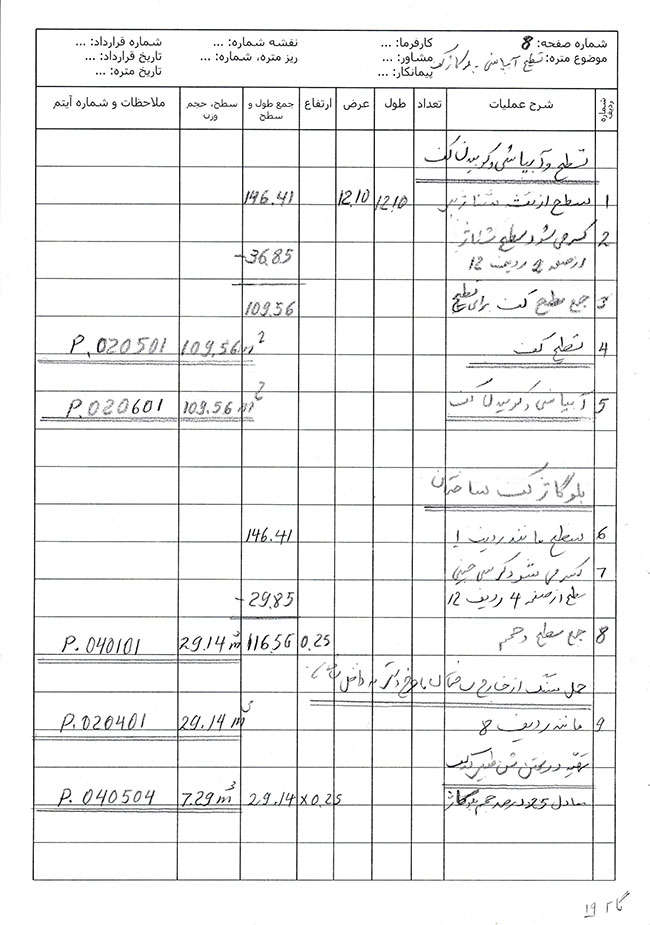 شماره صفحه: 8 کارفرما: ... نقشه شماره: ... شماره قرارداد: ...
موضوع متره: تسطیح آبپاشی - بلوکاژ کف مشاور: ... ریز متره، شماره: ... تاریخ قرارداد: ...
پیمانکار: ... تاریخ متره: ...
شماره ردیف شرح عملیات تعداد طول عرض ارتفاع جمع طول و سطح سطح، حجم وزن ملاحظات و شماره آیتم
تسطیح و آبپاشی و کوبیدن کف
1 سطح از نقشه 12.10 12.10 146.41
2 کسر می شود سطح شناژ
از صفحه 2 ردیف 12 -36.85
3 جمع سطح کف برای تسطیح 109.56
4 تسطیح کف 109.56 m2 P.020501
5 آبپاشی و کوبیدن کف 109.56 m2 P.020601
بلوکاژ کف ساختمان
6 سطح مانند ردیف 1 146.41
7 کسر می شود کرسی چینی
سطح از صفحه 4 ردیف 12 -29.85
8 جمع سطح و حجم 0.25 116.56 29.14 m3 P.040101
حمل سنگ از خارج ساختمان با به داخل
9 مانند ردیف 8 29.14 m3 P.020401
تهیه و ریختن شن
معادل 25 درصد حجم بلوکاژ 29.14 x 0.25 7.29 m3 P.040504